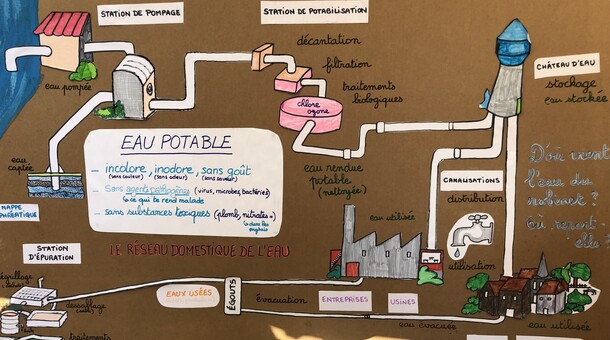 STATION DE POMPAGE
STATION DE POTABILISATION
décantation
filtration
traitements
biologiques
chlore
ozone
CHÂTEAU D'EAU
stockage
eau stockée
eau pompée
eau rendue
potable
(nettoyée)
EAU POTABLE
– incolore, inodore, sans goût
(sans couleur) (sans odeur) (sans saveur)
– Sans agents pathogènes (virus, microbes, bactéries)
↳ ce qui te rend malade
– sans substances toxiques (plomb, nitrates..)
↳ dans les
engrais
eau
captée
NAPPE
PHRÉATIQUE
CANALISATIONS
distribution
D'où vient
l'eau du
robinet ?
Où repart-
elle ?
eau utilisée
utilisation
LE RÉSEAU DOMESTIQUE DE L'EAU
STATION
D'ÉPURATION
dégrillage
dessablage
EAUX USÉES
ÉGOUTS
évacuation
ENTREPRISES
USINES
eau évacuée
eau utilisée
traitements